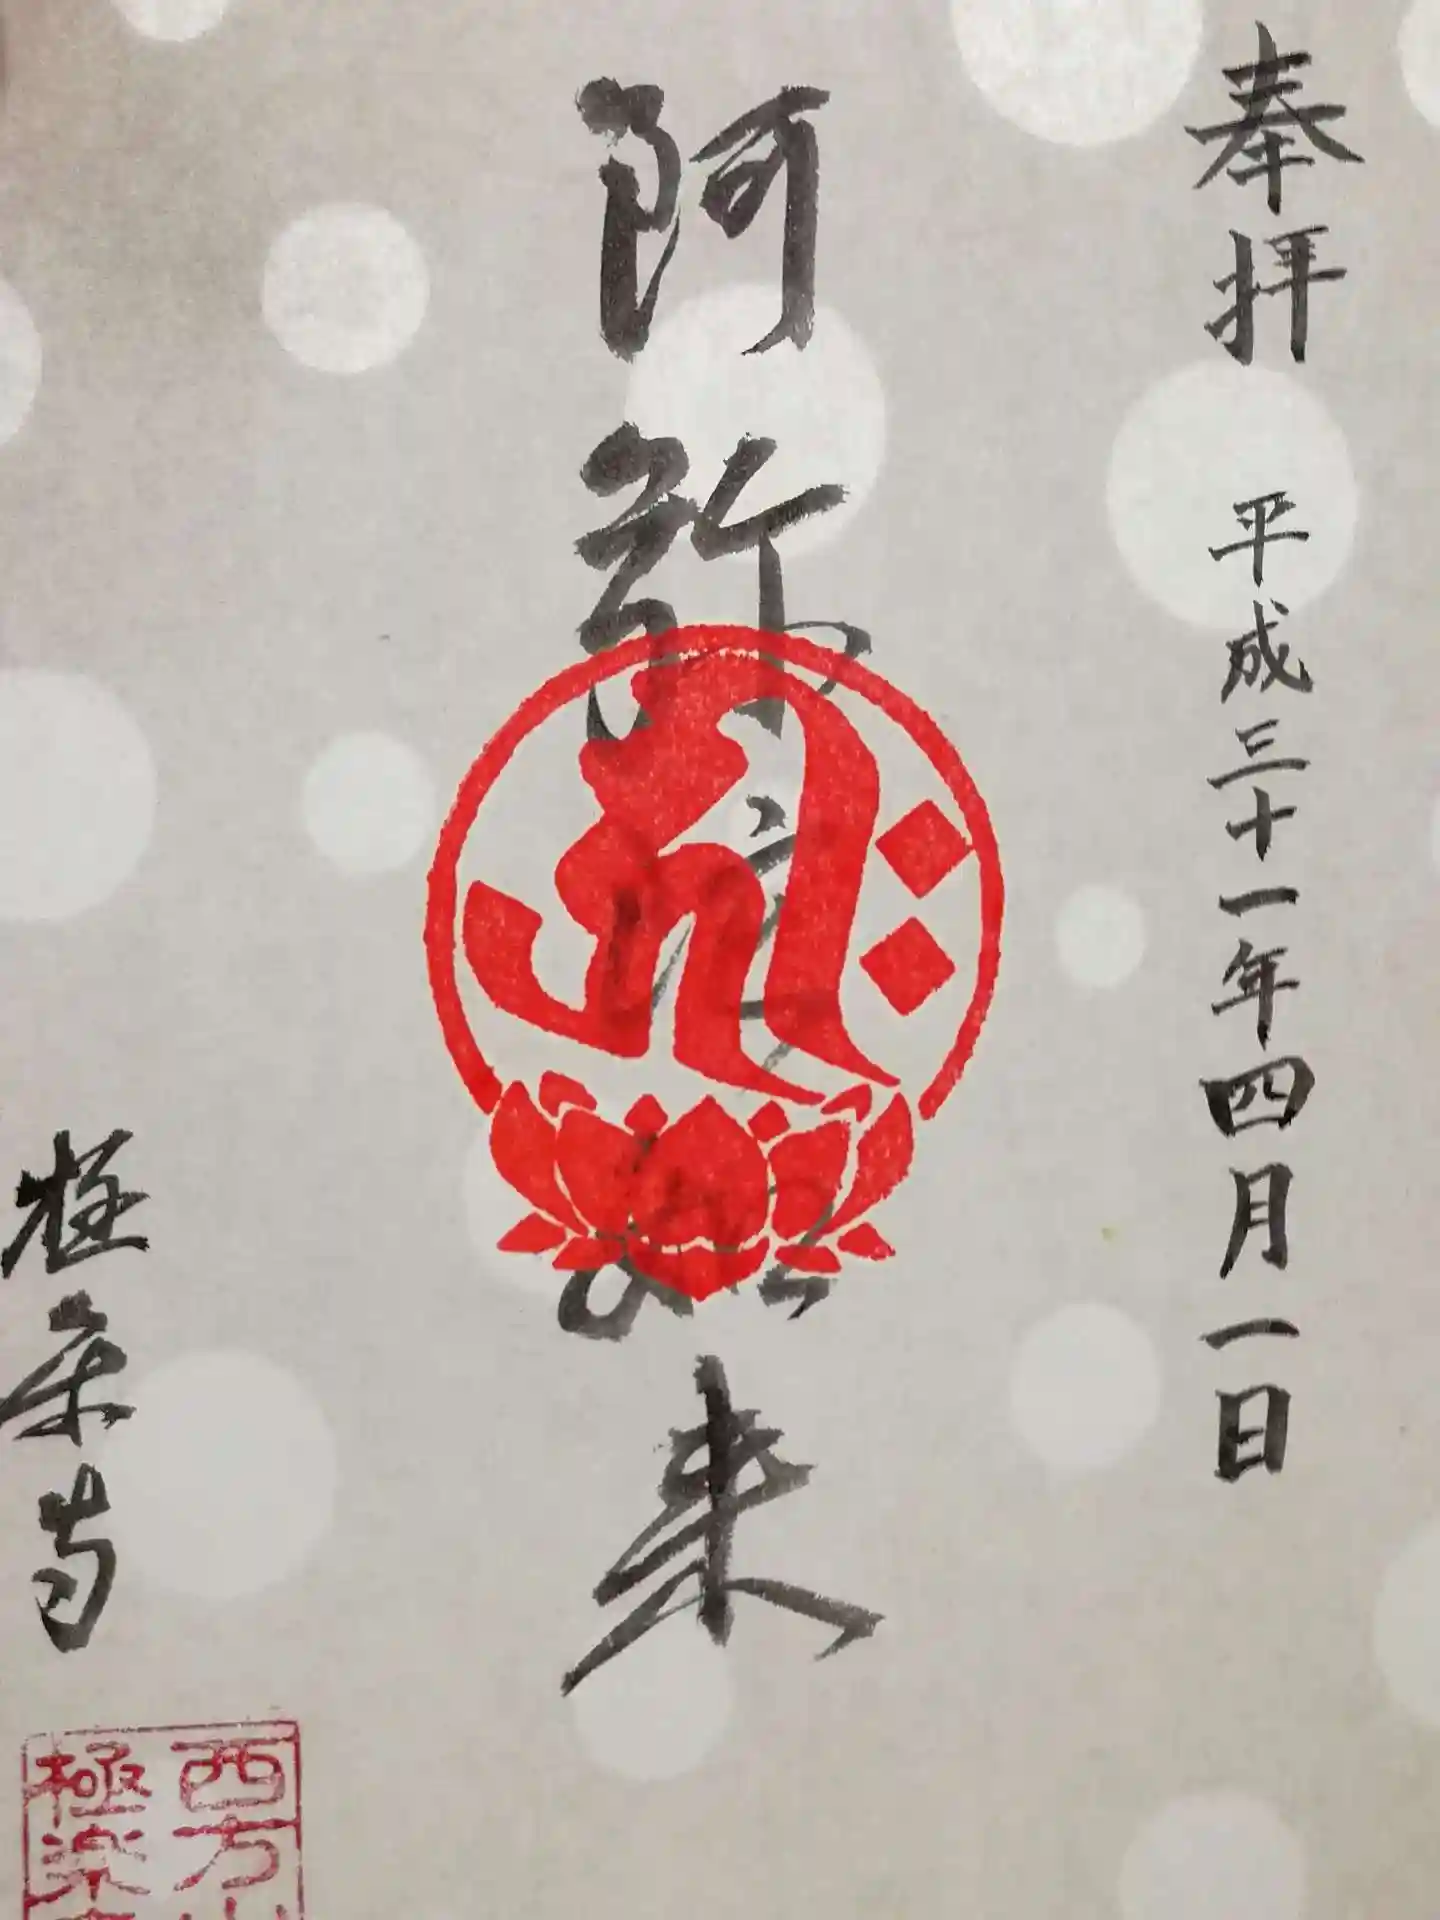 奉拝 平成三十一年四月一日
阿弥陀如来
極楽寺
西方山
極楽寺